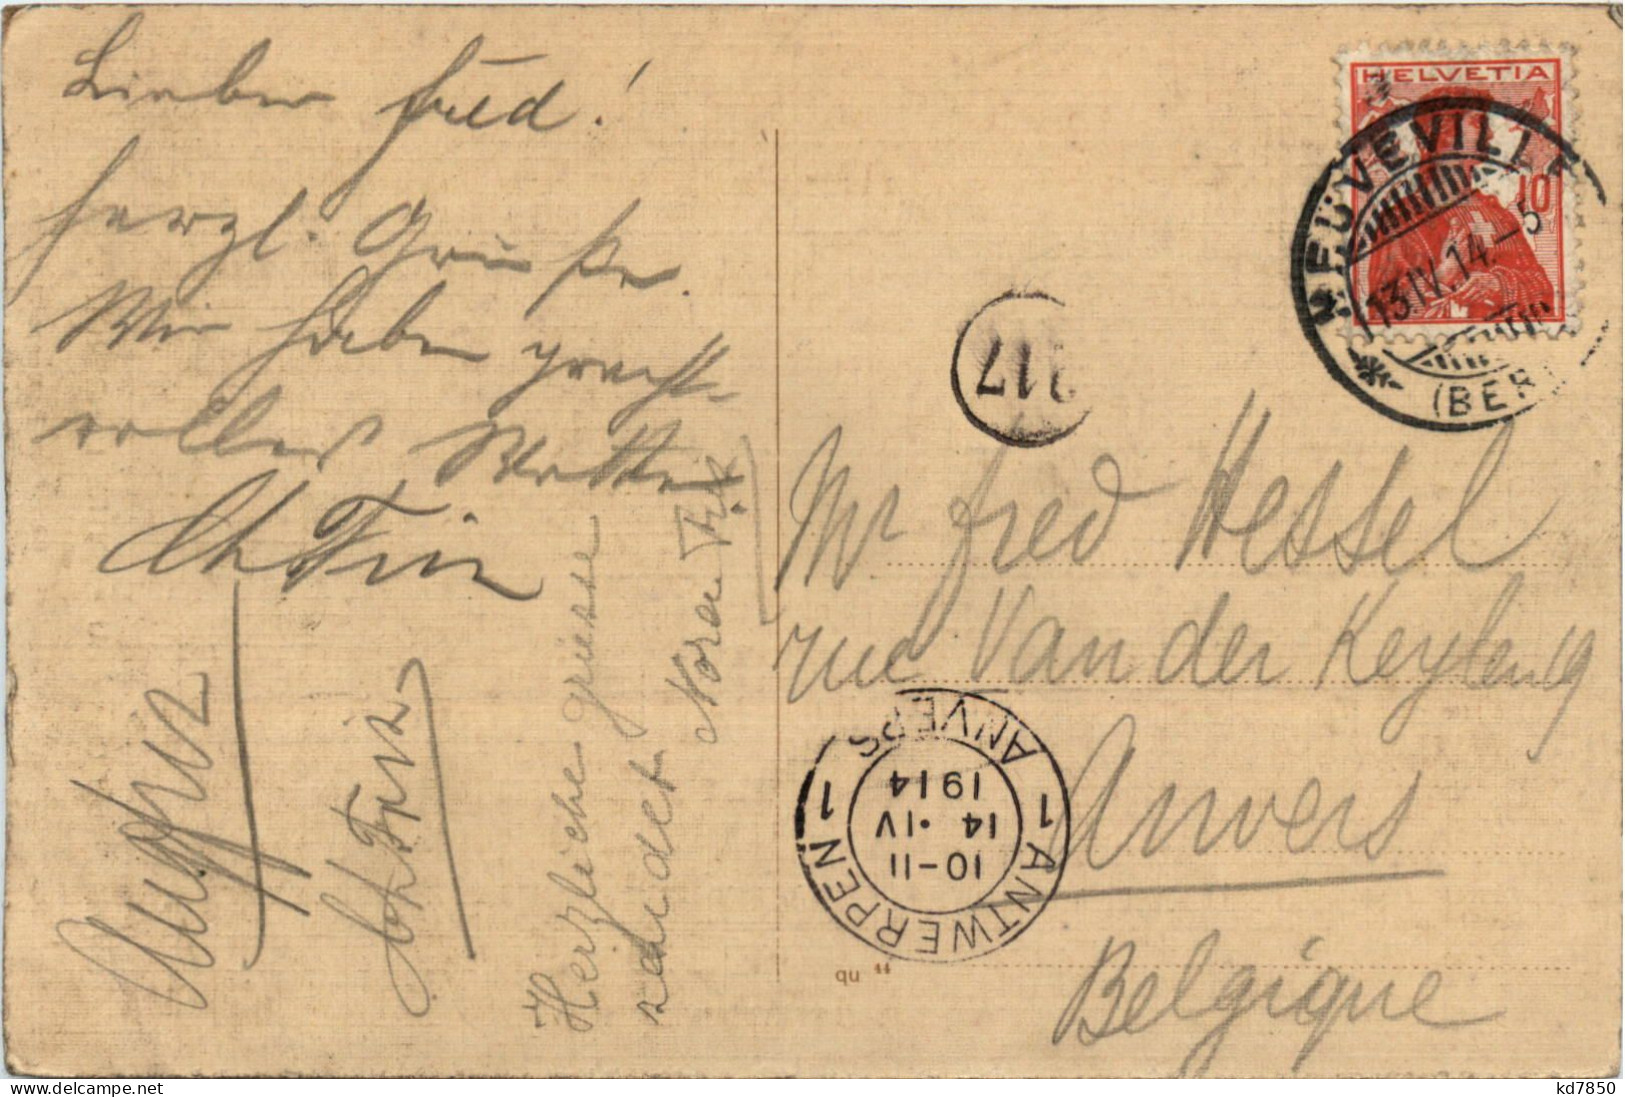 Lieber Fred!
herzl. Grüße.
Wir haben pracht-
volles Wetter
HELVETIA
10
NEUVEVILLE
13.IV.14.–5
(BERN)
117
Mr Fred Hessel
rue Van der Keylen 19
Anvers
Belgique
1 ANTWERPEN 1
ANVERS
10-11
14·IV
1914
Herzliche griesse
sendet Nora
qu 44
www.delcampe.net
kd7850